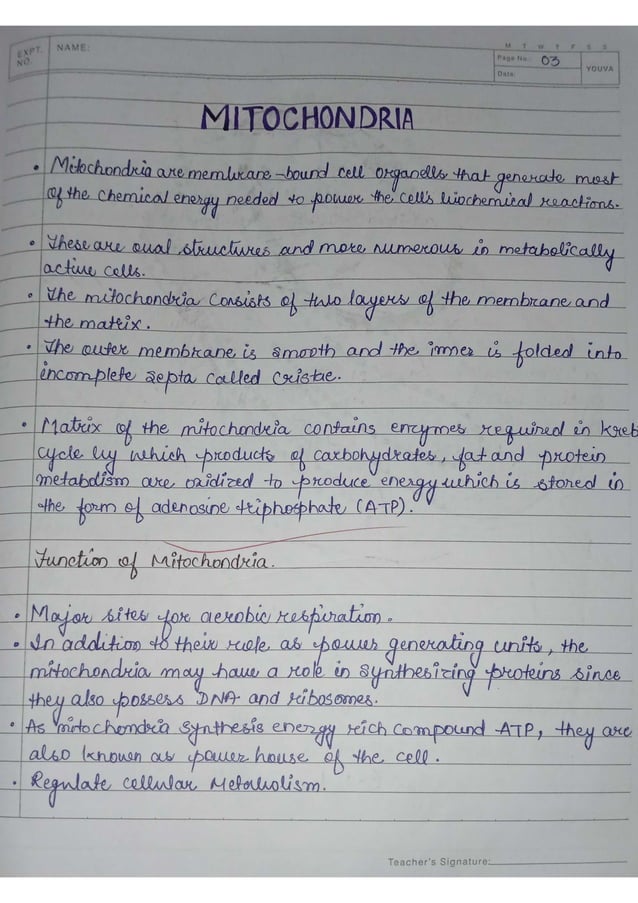 M T W T F S S
EXPT. NO.
NAME:
Page No.: 03
Date:
YOUVA
MITOCHONDRIA
• Mitochondria are membrane-bound cell organells that generate most
of the chemical energy needed to power the cell's biochemical reactions.
• These are oval structures and more numerous in metabolically
active cells.
• The mitochondria consists of two layers of the membrane and
the matrix.
• The outer membrane is smooth and the inner is folded into
incomplete septa called cristae.
• Matrix of the mitochondria contains enzymes required in Kreb
cycle by which products of carbohydrates, fat and protein
metabolism are oxidized to produce energy which is stored in
the form of adenosine triphosphate (ATP).
Function of Mitochondria.
• Major sites for aerobic respiration.
• In addition to their role as power generating units, the
mitochondria may have a role in synthesizing proteins since
they also possess DNA and ribosomes.
• As mitochondria synthesis energy rich compound ATP, they are
also known as power house of the cell.
• Regulate cellular Metabolism.
Teacher's Signature: